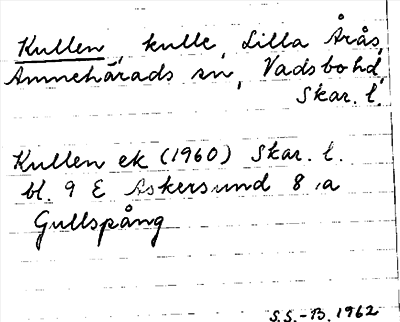 Kullen, kulle, Lilla Årås,
Amnehärads sn, Vadsbo hd,
Skar. l.
Kullen ek (1960) Skar. l.
bl. 9 E Askersund 8 a
Gullspång
S.S.-B. 1962